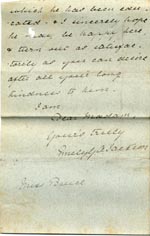 which he has been edu-
cated. I sincerely hope
he may be happy here
& turn out as satisfac-
torily as your can desire
after all your long
kindness to him.
I am
Dear Madam
Yours truly
Emely J. Jackson
Miss Bence